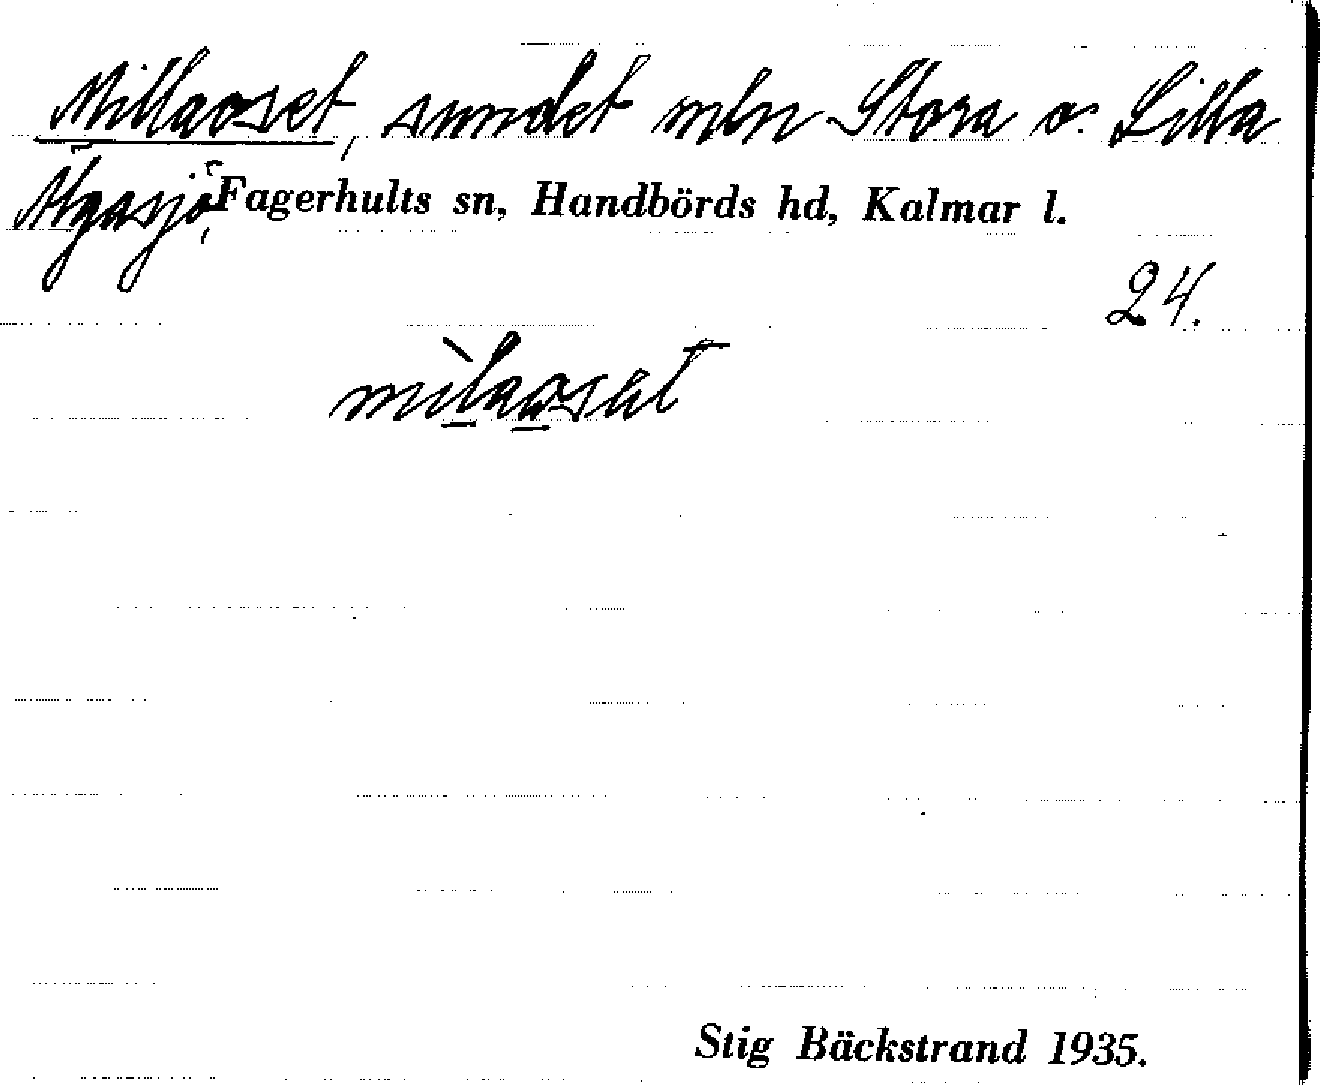 Millaoset, sundet mln Stora o. Lilla
Älgasjö, Fagerhults sn, Handbörds hd, Kalmar l.
24.
mìlaosət
Stig Bäckstrand 1935.